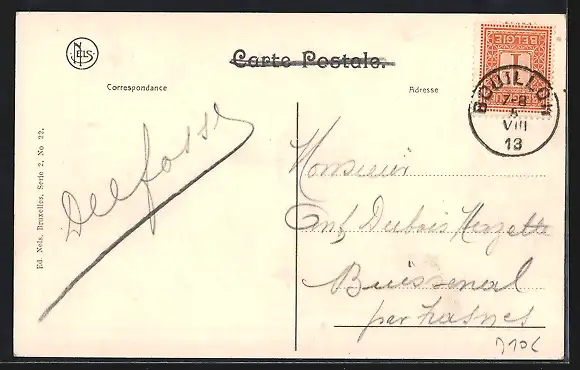 NELS
Carte Postale.
Correspondance
Adresse
BELGIE
1
BOUILLON
7-8
5
VIII
13
Ed. Nels, Bruxelles, Serie 2, No 22.
Delfosse
Monsieur
Dubois Herzette
Buissenal
par